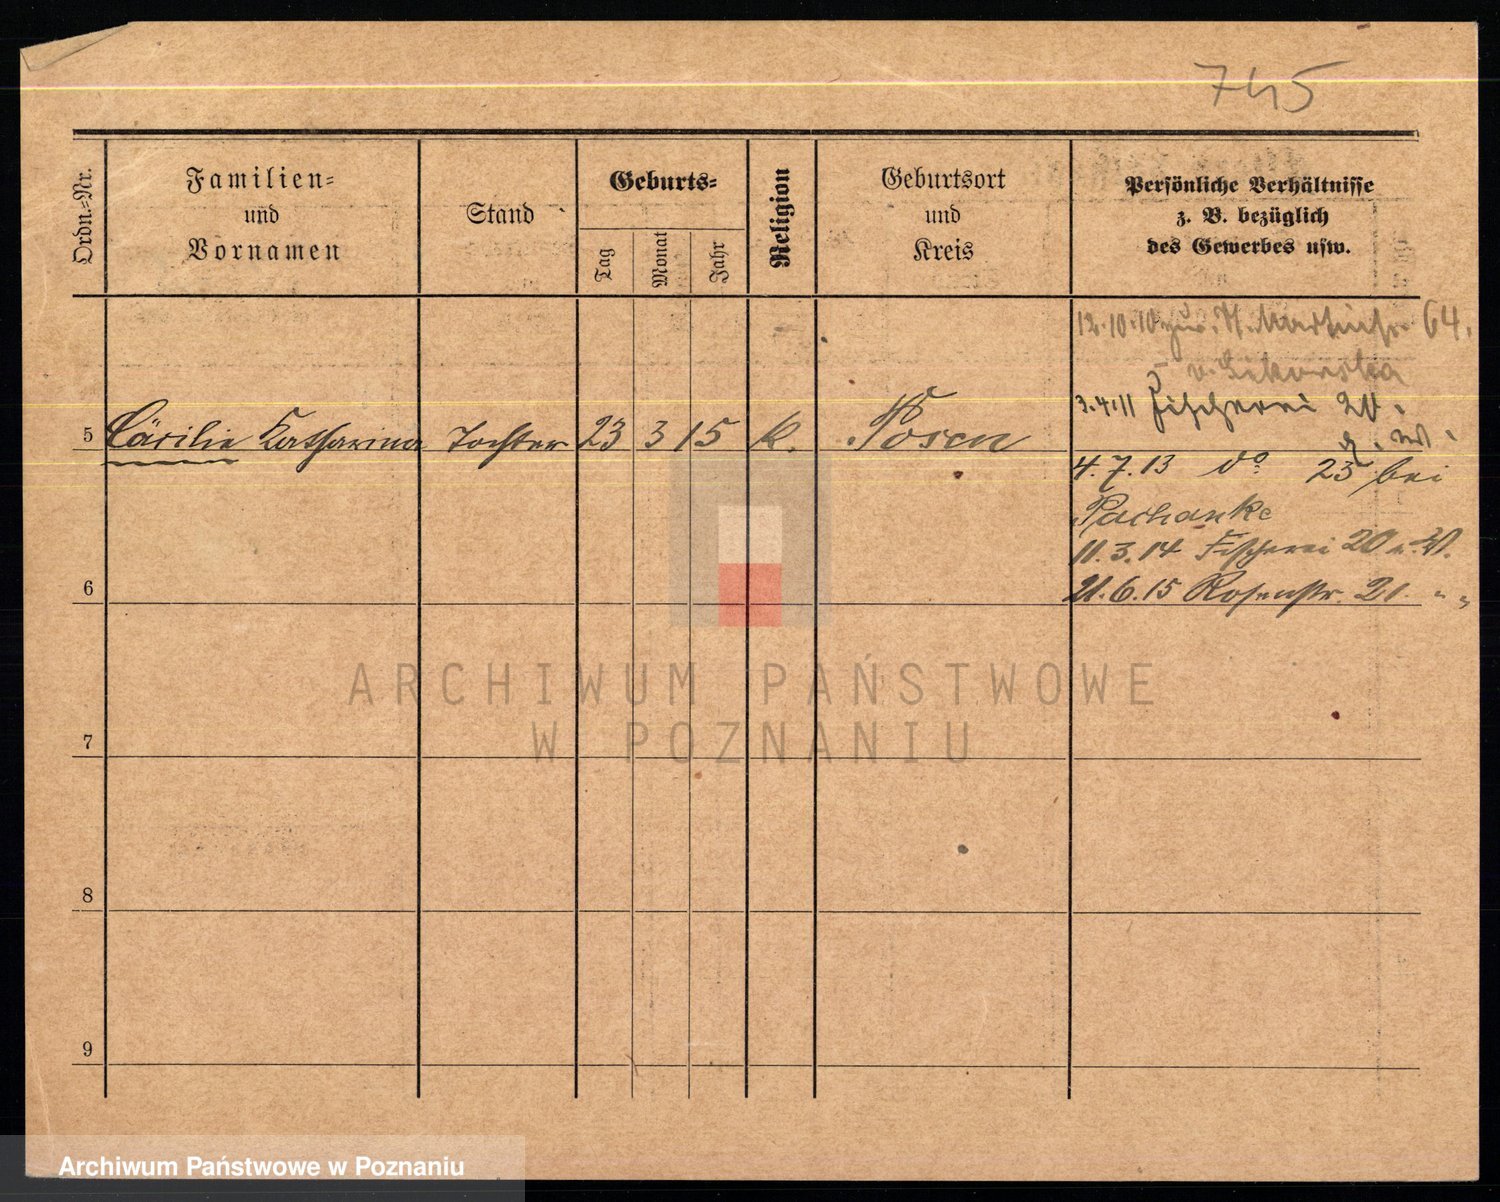 745
Ordn.-Nr.
Familien-
und
Vornamen
Stand
Geburts-
Tag
Monat
Jahr
Religion
Geburtsort
und
Kreis
Persönliche Verhältnisse
z. B. bezüglich
des Gewerbes usw.
12.10.10 St. Martinstr. 64.
v. Sikorska
3.4.11 Fischerei 20.
5 Cäcilie Katharina Tochter 23 3 15 k. Posen
4.7.13 do 23 bei
Pachanke
11.3.14 Fischerei 20
6
21.6.15 Rosenstr. 21. " "
ARCHIWUM PAŃSTWOWE
W POZNANIU
7
8
9
Archiwum Państwowe w Poznaniu